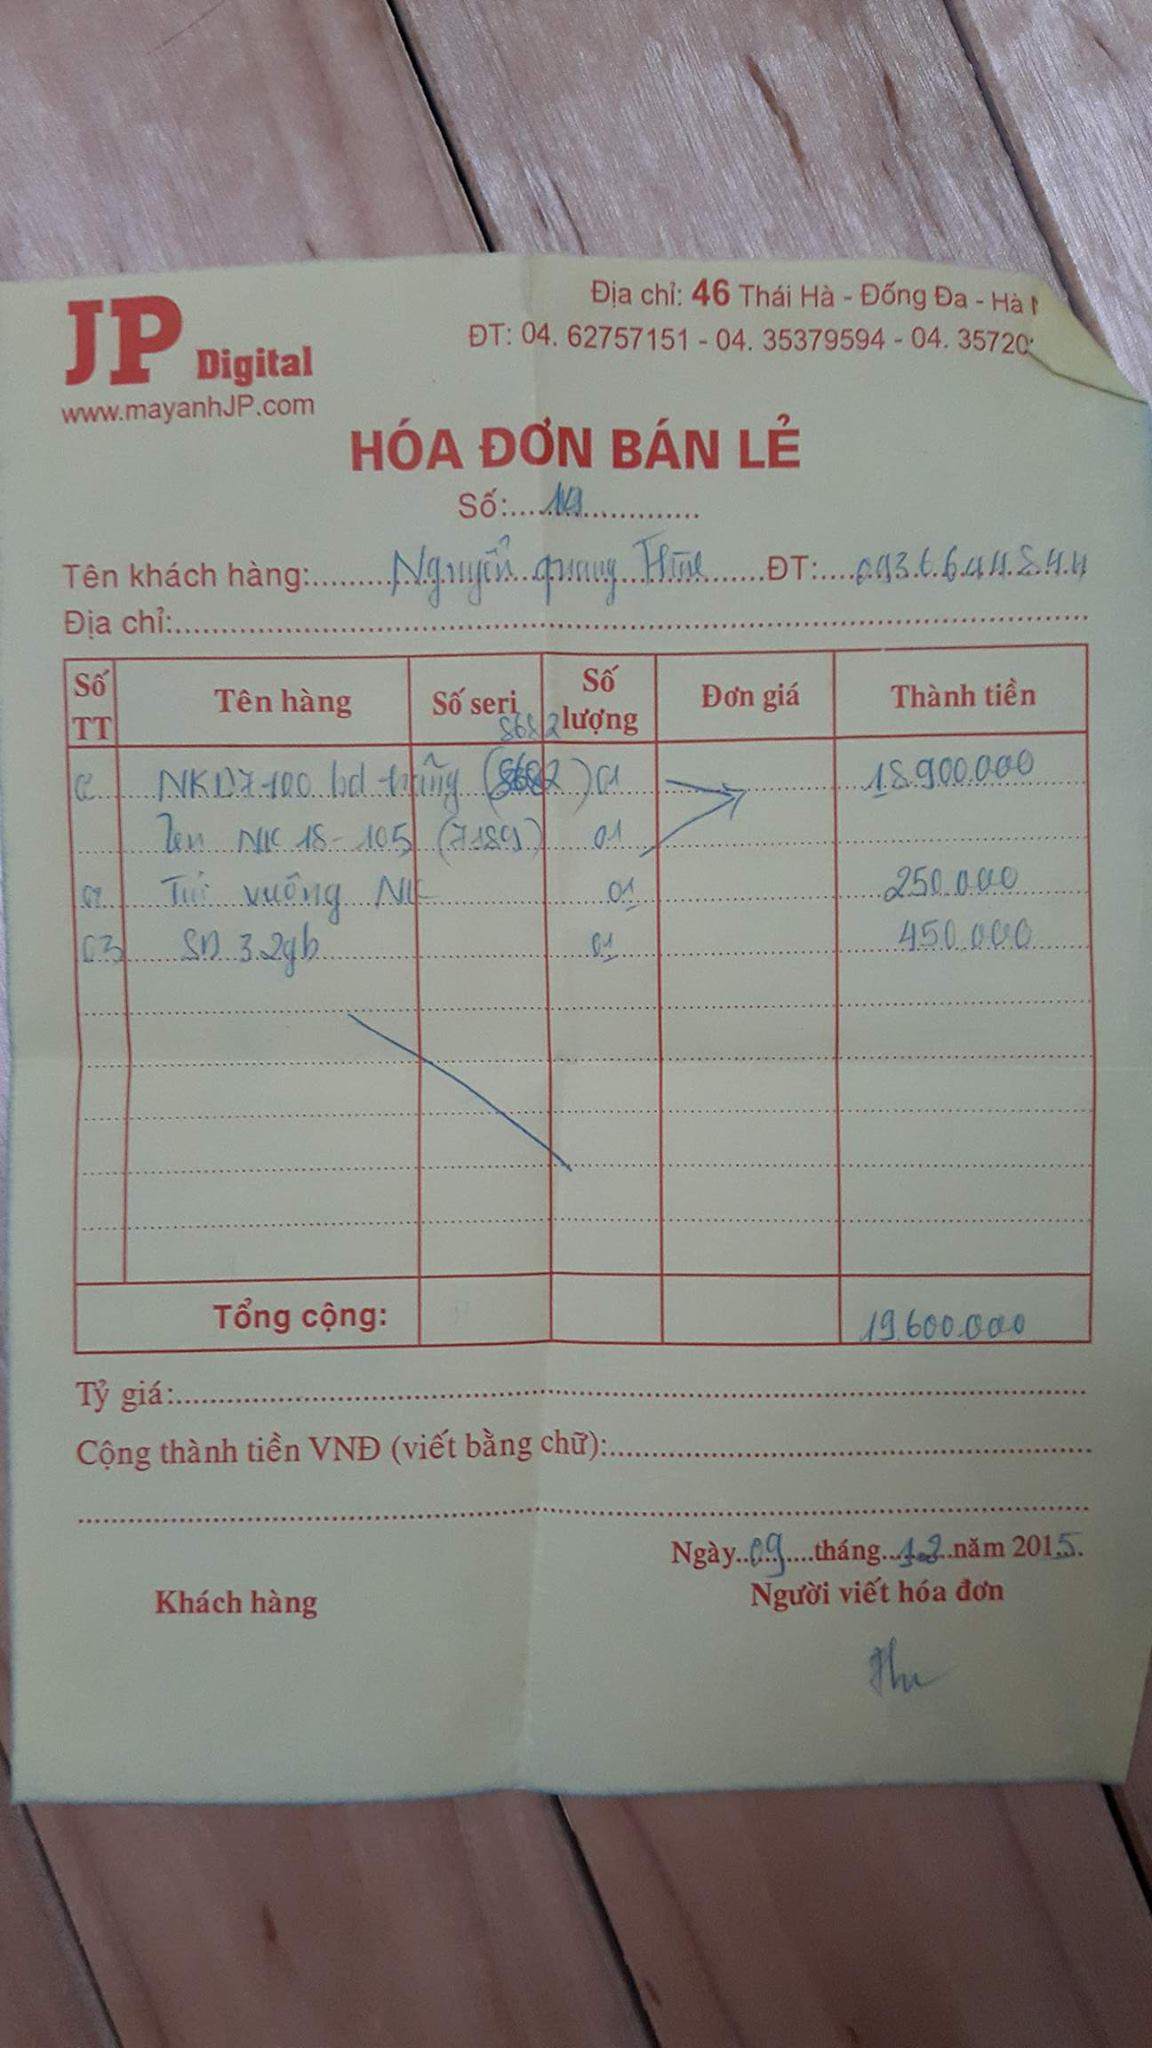 JP Digital
www.mayanhJP.com
Địa chỉ: 46 Thái Hà - Đống Đa - Hà
ĐT: 04. 62757151 - 04. 35379594 - 04. 35720
HÓA ĐƠN BÁN LẺ
Số:
Tên khách hàng: Nguyễn quang ĐT: 0936644844
Địa chỉ:
Số TT Tên hàng Số seri Số lượng Đơn giá Thành tiền
8682
NKD7100 bd (8682) 01 18.900.000
len NK 18-105 (7189) 01
Túi vuông NK 01 250.000
03 SD 32gb 01 450.000
Tổng cộng: 19.600.000
Tỷ giá:
Cộng thành tiền VNĐ (viết bằng chữ):
Ngày 09 tháng 12 năm 2015.
Khách hàng Người viết hóa đơn